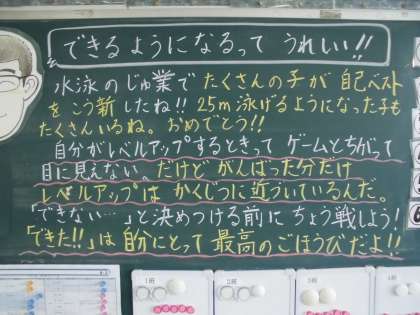 できるようになるって うれしい!!
水泳のじゅ業で たくさんの子が 自己ベスト
をこう新したね!! 25m泳げるようになった子も
たくさんいるね。おめでとう!!
自分がレベルアップするときって ゲームとちがって
目に見えない。だけど がんばった分だけ
レベルアップは かくじつに近づいているんだ。
「できない…」と決めつける前に ちょう戦しよう!
「できた!!」は 自分にとって 最高のごほうびだよ!!
1班
2班
3班
4班